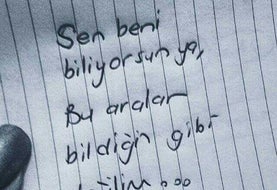 Sen beni
biliyorsun ya,
Bu aralar
bildiğin gibi